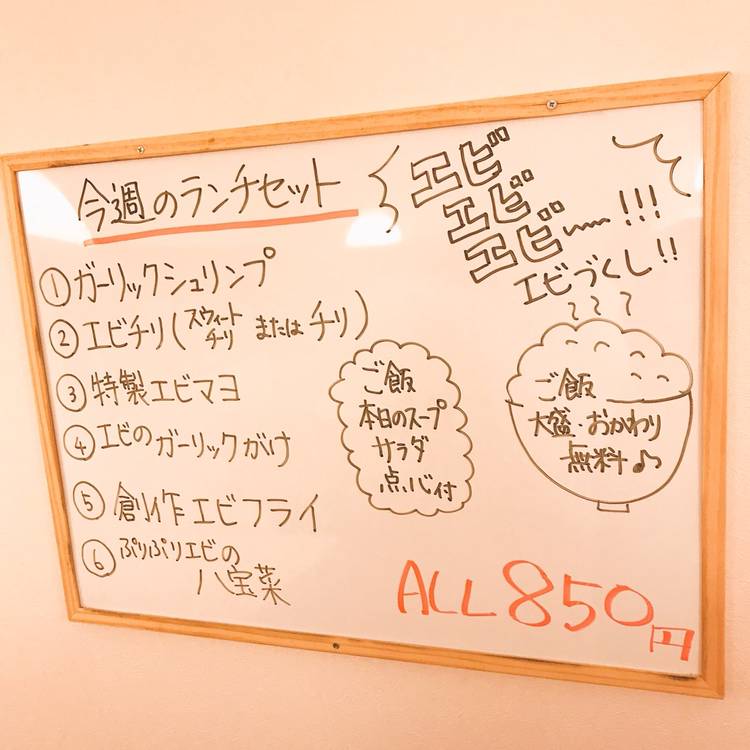 今週のランチセット
エビ
エビ
エビ〜!!!
エビづくし!!
①ガーリックシュリンプ
②エビチリ(スウィートチリ または チリ)
③特製エビマヨ
④エビのガーリックがけ
⑤創作エビフライ
⑥ぷりぷりエビの
八宝菜
ご飯
本日のスープ
サラダ
点心付
ご飯
大盛・おかわり
無料♪
ALL850円